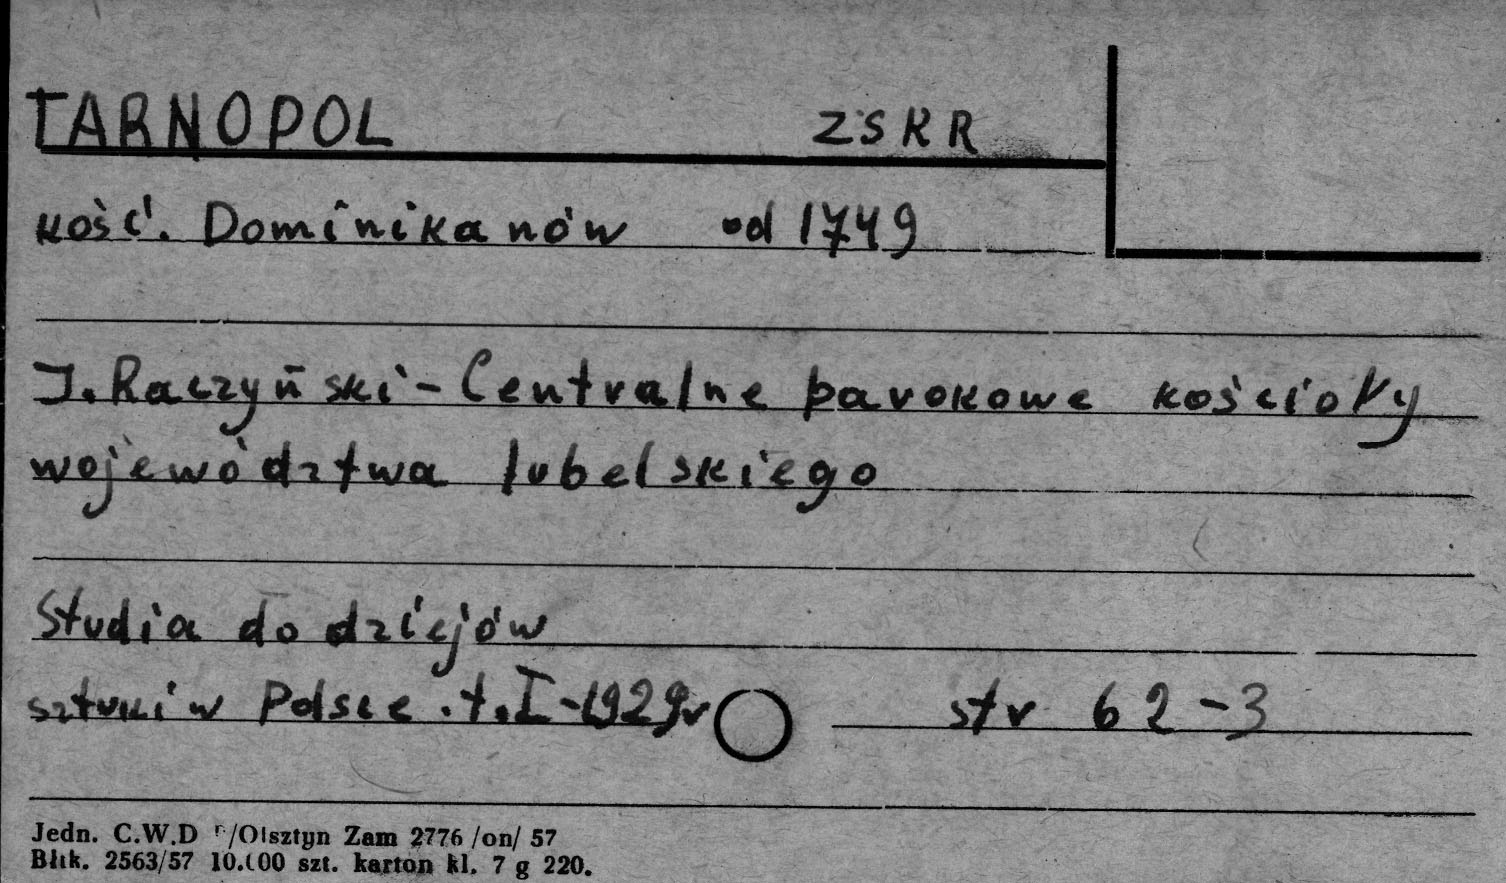 TARNOPOL ZSRR
kość. Dominikanów od 1749
J. Raczyński - Centralne barokowe kościoły
województwa lubelskiego
Studia do dziejów
sztuki w Polsce. t. I - 1929 r
str 62-3
Jedn. C.W.D /Olsztyn Zam 2776 /on/ 57
Blik. 2563/57 10.000 szt. karton kl. 7 g 220.